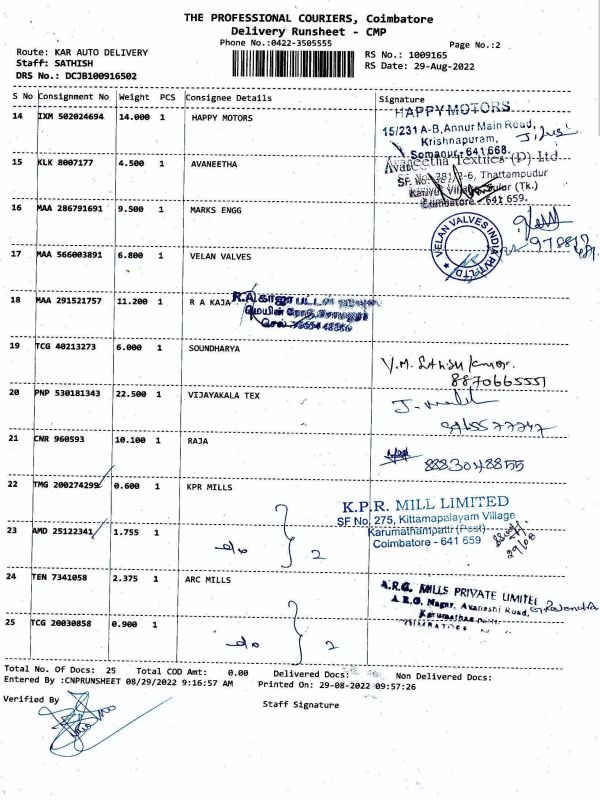 THE PROFESSIONAL COURIERS, Coimbatore
Delivery Runsheet - CMP
Phone No.:0422-3505555
Page No.:2
Route: KAR AUTO DELIVERY
Staff: SATHISH
DRS No.: DCJB100916502
RS No.: 1009165
RS Date: 29-Aug-2022
S No Consignment No Weight PCS Consignee Details Signature
14 IXM 502024694 14.000 1 HAPPY MOTORS
HAPPY MOTORS
15/231 A-B, Annur Main Road,
Krishnapuram,
Somanur - 641 668.
15 KLK 8007177 4.500 1 AVANEETHA
Avaneetha Textiles (P) Ltd
Thattampudur
Coimbatore - 641 659.
16 MAA 286791691 9.500 1 MARKS ENGG
17 MAA 566003891 6.800 1 VELAN VALVES
VELAN VALVES INDIA PVT LTD
18 MAA 291521757 11.200 1 R A KAJA
R.A.காஜா பட்டன்
மெயின் ரோடு, சோமனூர்
19 TCG 40213273 6.000 1 SOUNDHARYA
V.M. Sathish kumar.
8870665551
20 PNP 530181343 22.500 1 VIJAYAKALA TEX
21 CNR 960593 10.100 1 RAJA
8883048855
22 TMG 200274299 0.600 1 KPR MILLS
K.P.R. MILL LIMITED
SF No. 275, Kittamapalayam Village
Karumathampatti (Post)
Coimbatore - 641 659
29/08
23 AMD 25122341 1.755 1
do } 2
24 TEN 7341058 2.375 1 ARC MILLS
A.R.G. MILLS PRIVATE LIMITED
A.R.G. Nagar, Avanashi Road,
25 TCG 20030858 0.900 1
do } 2
Total No. Of Docs: 25 Total COD Amt: 0.00 Delivered Docs: Non Delivered Docs:
Entered By :CNPRUNSHEET 08/29/2022 9:16:57 AM Printed On: 29-08-2022 09:57:26
Verified By
Staff Signature